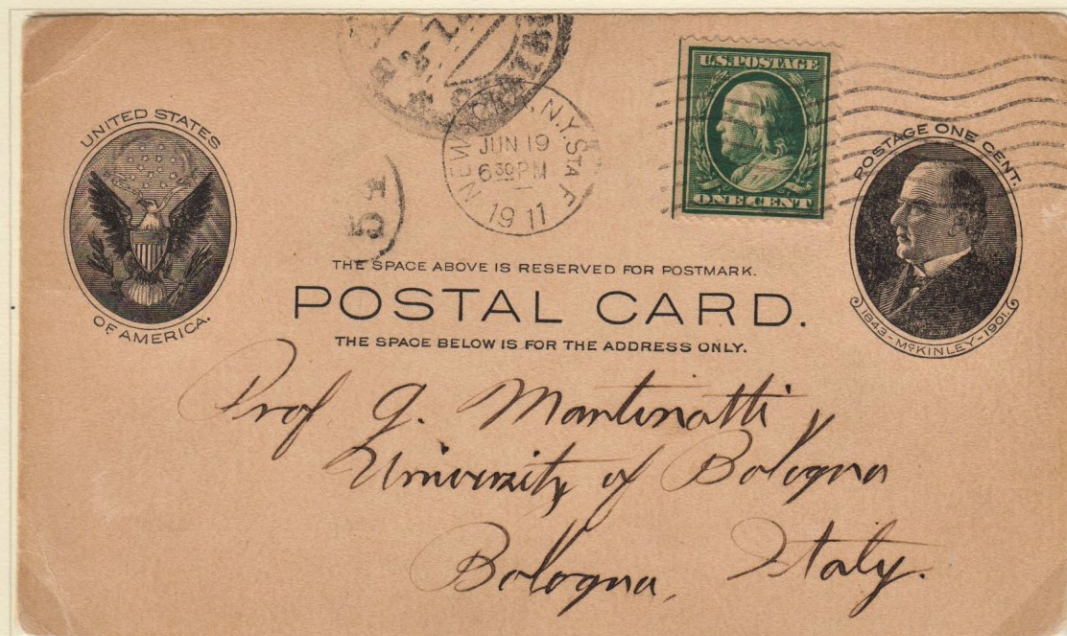 UNITED STATES
OF AMERICA.
NEW N.Y. STA F
JUN 19
6 30 PM
1911
U.S. POSTAGE
ONE CENT
POSTAGE ONE CENT.
1843 - McKINLEY - 1901.
51
THE SPACE ABOVE IS RESERVED FOR POSTMARK.
POSTAL CARD.
THE SPACE BELOW IS FOR THE ADDRESS ONLY.
Prof G. Martinotti
University of Bologna
Bologna, Italy.